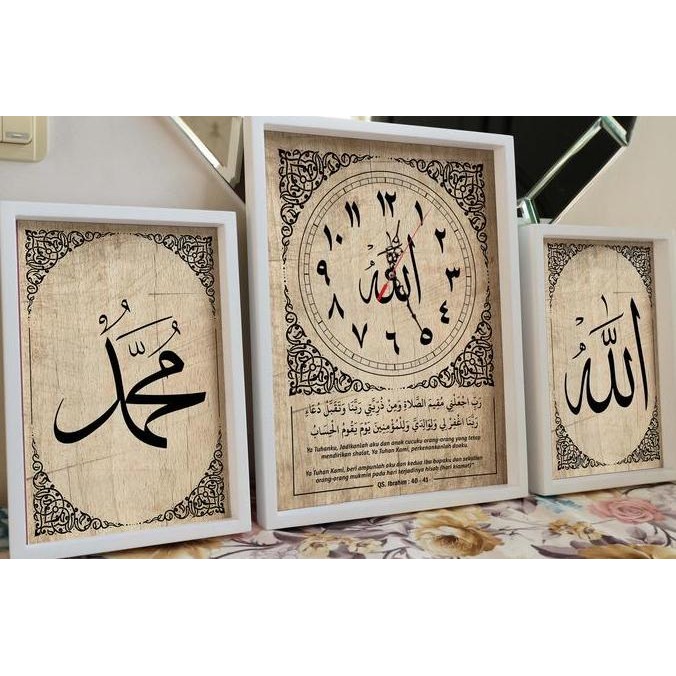 مُحَمَّدٌ
12
11 1
10 2
9 الله 3
8 4
7 5
6
رَبِّ اجْعَلْنِي مُقِيمَ الصَّلَاةِ وَمِنْ ذُرِّيَّتِي رَبَّنَا وَتَقَبَّلْ دُعَاءِ
رَبَّنَا اغْفِرْ لِي وَلِوَالِدَيَّ وَلِلْمُؤْمِنِينَ يَوْمَ يَقُومُ الْحِسَابُ
Ya Tuhanku, Jadikanlah aku dan anak cucuku orang-orang yang tetap
mendirikan shalat, Ya Tuhan Kami, perkenankanlah doaku.
Ya Tuhan Kami, beri ampunlah aku dan kedua ibu bapaku dan sekalian
orang-orang mukmin pada hari terjadinya hisab (hari kiamat)"
QS. Ibrahim : 40 - 41
الله